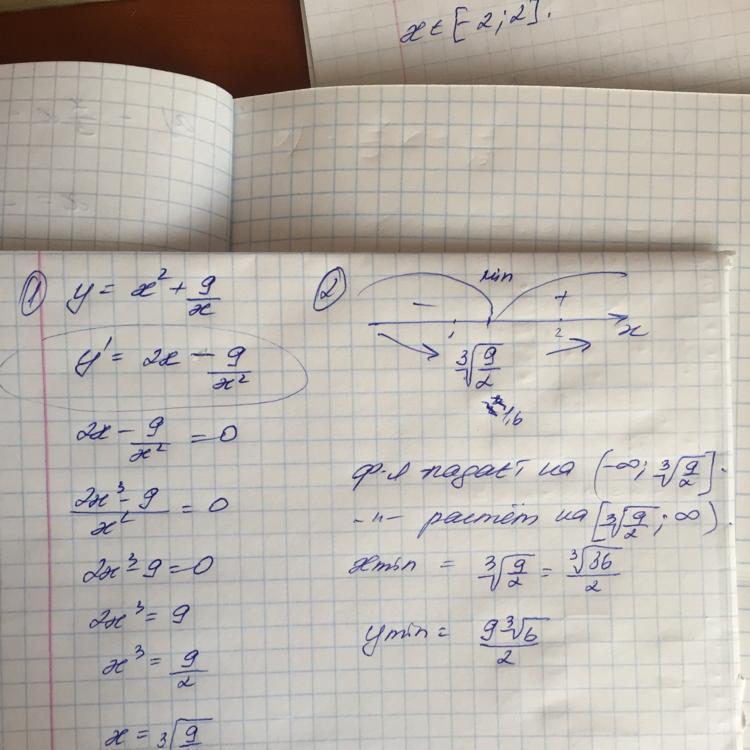 x ∈ [-2; 2].
① y = x² + 9/x
y' = 2x - 9/x²
2x - 9/x² = 0
(2x³ - 9)/x² = 0
2x³ - 9 = 0
2x³ = 9
x³ = 9/2
x = ∛(9/
② min
- +
1 2 x
∛(9/2)
1,6
ф-я падает на (-∞; ∛(9/2)].
-"- растёт на [∛(9/2); ∞).
xmin = ∛(9/2) = ∛36/2
ymin = 9∛6/2